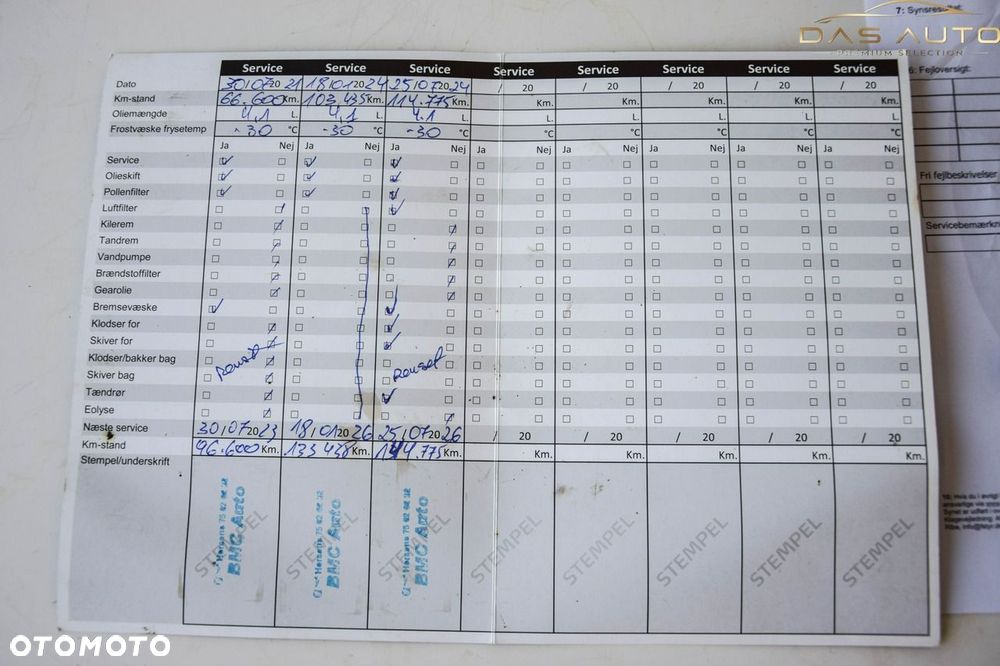 7: Synsresultat
DAS AUTO
PREMIUM SELECTION
Service Service Service Service Service Service Service Service
Dato 30/07 20 21 18/01 20 24 25/07 20 24 / 20 / 20 / 20 / 20 / 20
Km-stand 66.600 Km. 103.435 Km. 114.775 Km. Km. Km. Km. Km. Km.
Oliemængde 4,1 L. 4,1 L. 4.1 L. L. L. L. L. L.
Frostvæske frysetemp -30 °C -30 °C -30 °C °C °C °C °C °C
Ja Nej Ja Nej Ja Nej Ja Nej Ja Nej Ja Nej Ja Nej Ja Nej
Service
Olieskift
Pollenfilter
Luftfilter
Kilerem
Tandrem
Vandpumpe
Brændstoffilter
Gearolie
Bremsevæske
Klodser for
Skiver for
Klodser/bakker bag renset renset
Skiver bag
Tændrør
Eolyse
Næste service 30/07 20 23 18/01 20 26 25/07 20 26 / 20 / 20 / 20 / 20 / 20
Km-stand 96.600 Km. 133.435 Km. 144.775 Km. Km. Km. Km. Km. Km.
Stempel/underskrift
STEMPEL STEMPEL STEMPEL STEMPEL STEMPEL STEMPEL STEMPEL STEMPEL
BMC Auto
BMC Auto
BMC Auto
6: Fejloversigt:
Fri fejlbeskrivelser
OTOMOTO